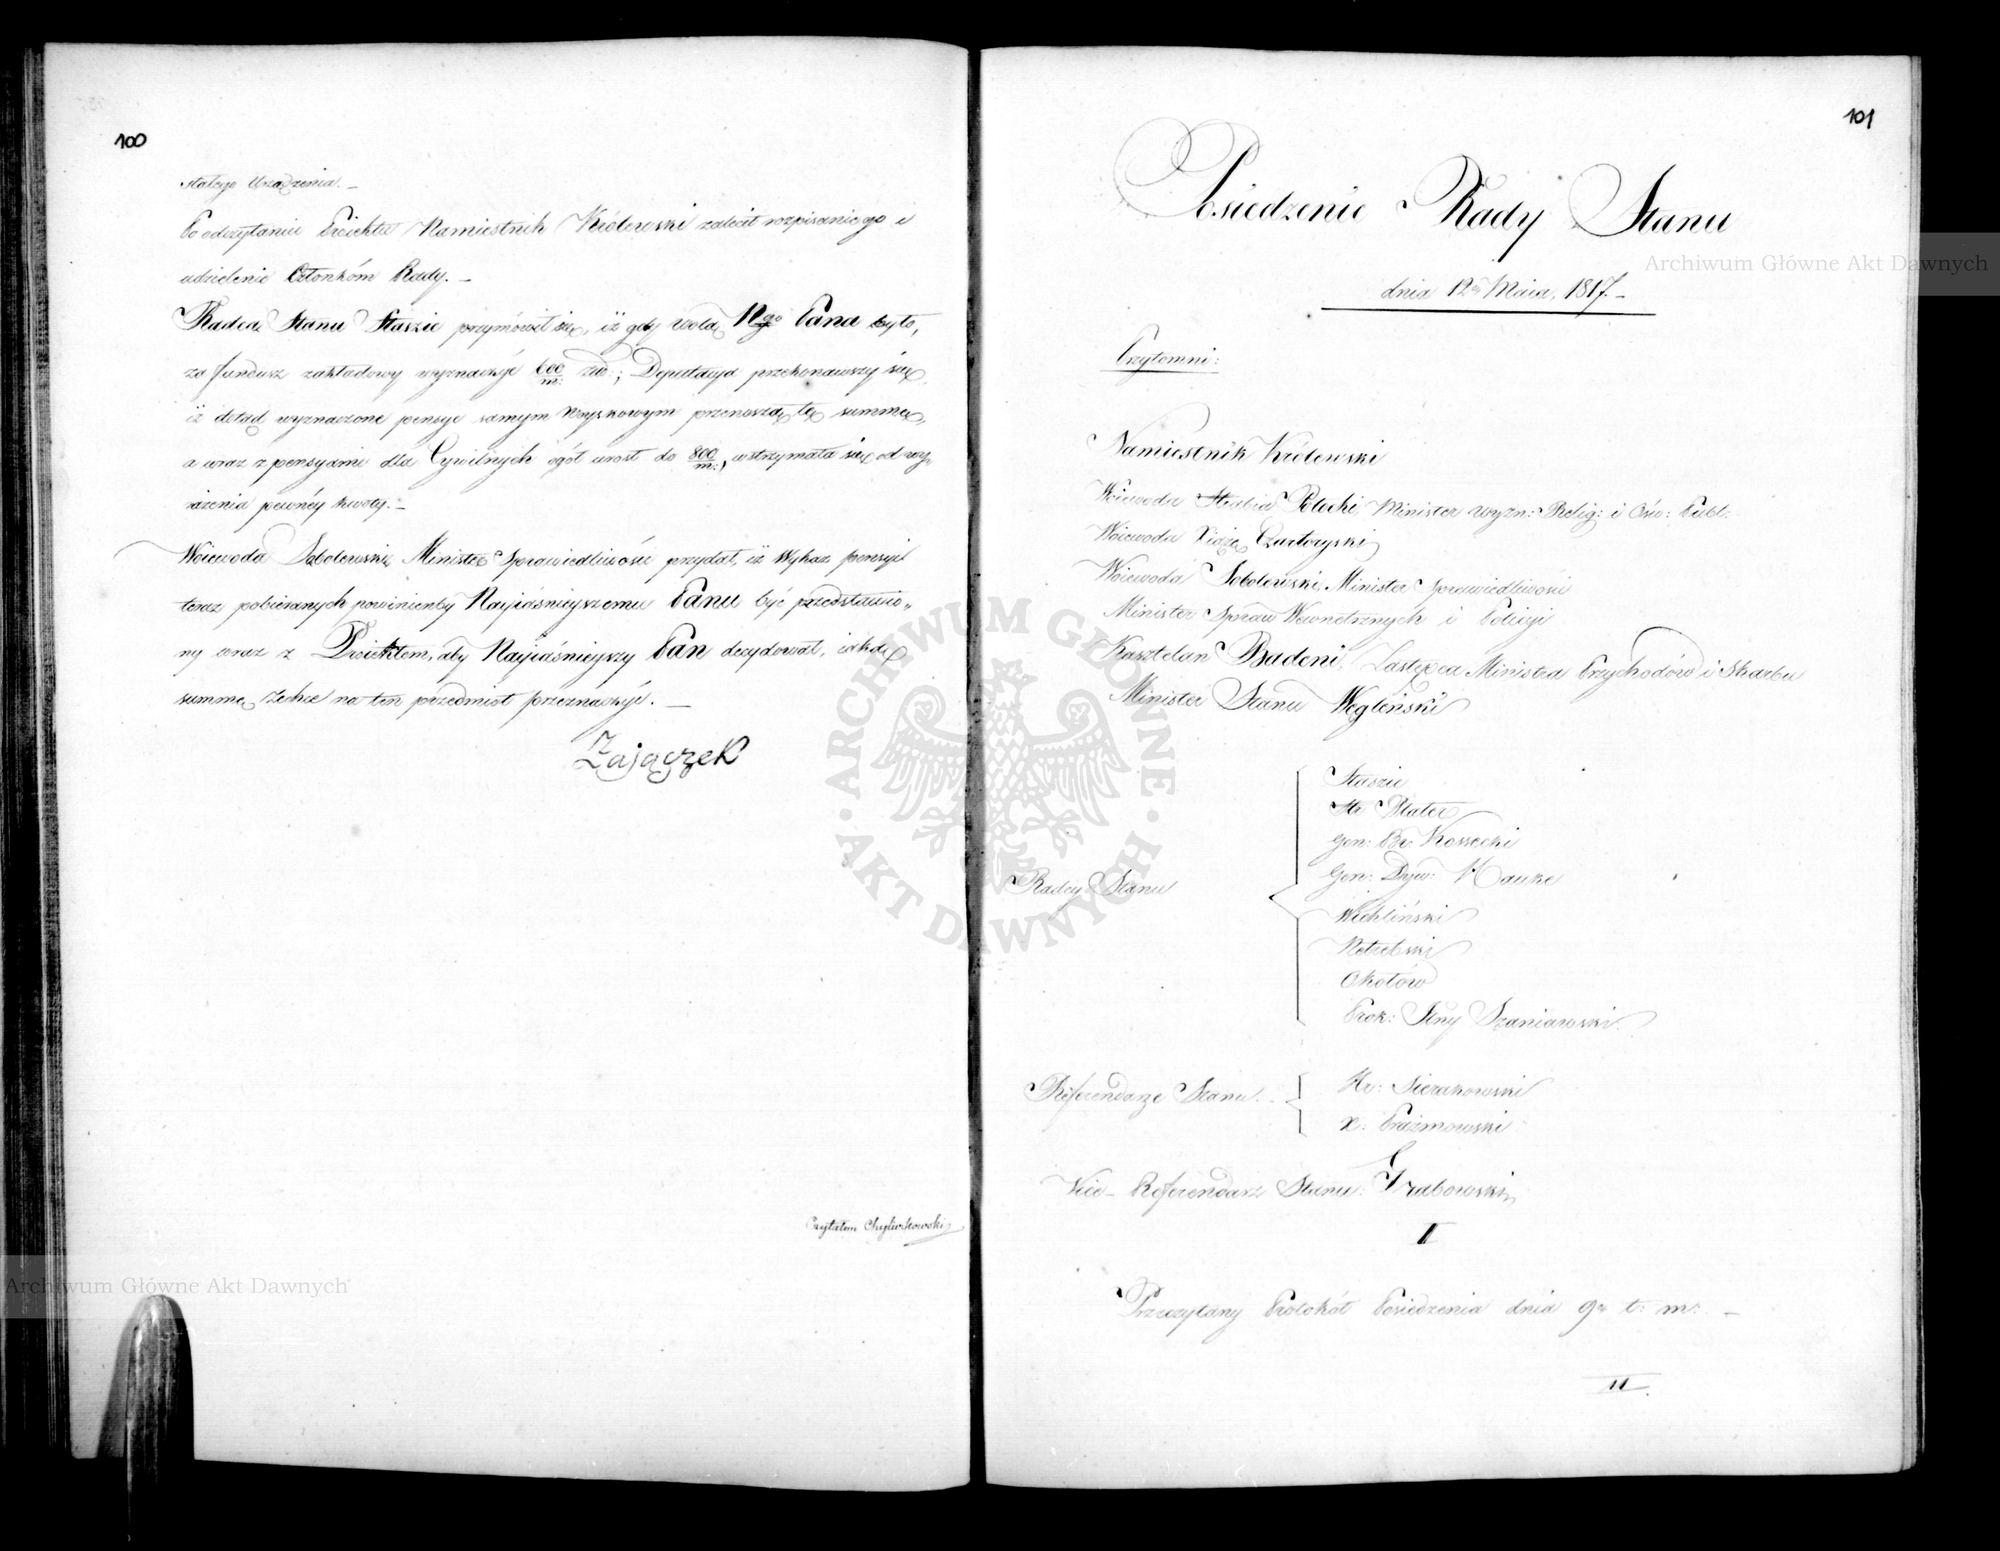 100
stałego Urządzenia. –
Po odczytaniu Proiektu Namiestnik Królewski zalecił rozpisanie go i
udzielenie Członkóm Rady. –
Radca Stanu Staszic przymówił się, iż gdy wolą N.go Pana było,
za fundusz zakładowy wyznaczyć 600/m: złł.; Deputacya przekonawszy się,
iż dotąd wyznaczone pensye samym Woyskowym przenoszą tę summę,
a wraz z pensyami dla Cywilnych ogół urost do 800/m:, wstrzymała się od wy-
rażenia pewnéy kwoty. –
Woiewoda Sobolewski, Minister Sprawiedliwości przydał, iż Wykaz pensyi
teraz pobieranych powinienby Nayiaśnieyszemu Panu być przedstawio„
ny wraz z Proiektem, aby Nayiaśnieyszy Pan decydował, iakką
summę zechce na ten przedmiot przeznaczyć. –
Zajączek
Czytałem Chyliczkowski
101
Posiedzenie Rady Stanu
dnia 12go Maia, 1817. –
Przytomni:
Namiestnik Królewski
Woiewoda Hrabia Potocki Minister Wyzn: Relig: i Ośw: Publ:
Woiewoda Xiąże Czartoryski
Woiewoda Sobolewski, Minister Sprawiedliwości
Minister Spraw Wewnętrznych i Policyi
Kasztelan Badeni, Zastępca Ministra Przychodów i Skarbu
Minister Stanu Węgleński
Radcy Stanu
Staszic
Hr Plater
Gen: Br: Kossecki
Gen: Dyw: Hauke
Wichliński
Netrebski
Okołów
Prok: Jlny Szaniawski
Referendarze Stanu. –
Hr: Sierakowski
X: Prażmowski
Vice – Referendarz Stanu: Grabowski
I
Przeczytany Protokół Posiedzenia dnia 9go t: m: –
II.
Archiwum Główne Akt Dawnych
Archiwum Główne Akt Dawnych
ARCHIWUM GŁÓWNE AKT DAWNYCH